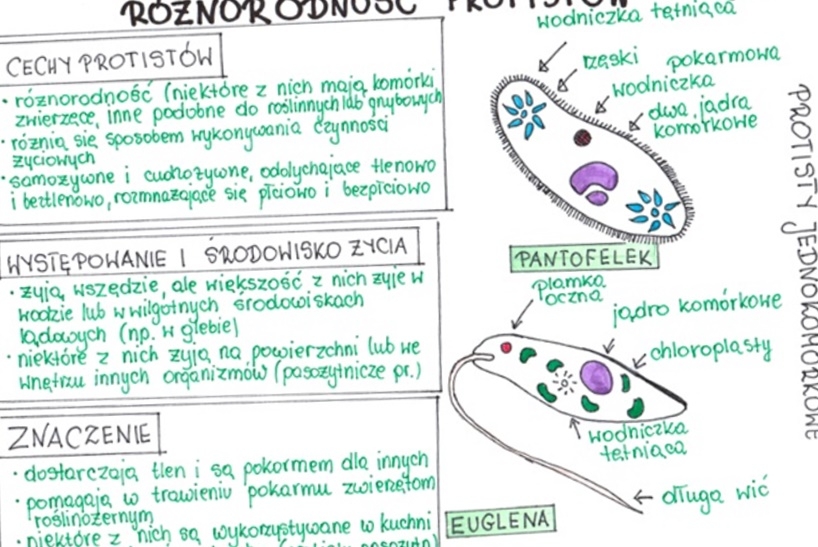 RÓŻNORODNOŚĆ PROTISTÓW
CECHY PROTISTÓW
• różnorodność (niektóre z nich mają komórki
zwierzęce, inne podobne do roślinnych lub grzybowych
• różnią się sposobem wykonywania czynności
życiowych
• samożywne i cudzożywne, oddychające tlenowo
i beztlenowo, rozmnażające się płciowo i bezpłciowo
WYSTĘPOWANIE I ŚRODOWISKO ŻYCIA
• żyją wszędzie, ale większość z nich żyje w
wodzie lub w wilgotnych środowiskach
lądowych (np. w glebie)
• niektóre z nich żyją na powierzchni lub we
wnętrzu innych organizmów (pasożytnicze pr.)
ZNACZENIE
• dostarczają tlen i są pokormem dla innych
• pomagają w trawieniu pokarmu zwierzętom
roślinożernym
• niektóre z nich są wykorzystywane w kuchni
wodniczka tętniąca
rzęski
pokarmowa
wodniczka
dwa jądra
komórkowe
PANTOFELEK
plamka
oczna
jądro komórkowe
chloroplasty
wodniczka
tętniąca
długa wić
EUGLENA
PROTISTY JEDNOKOMÓRKOWE